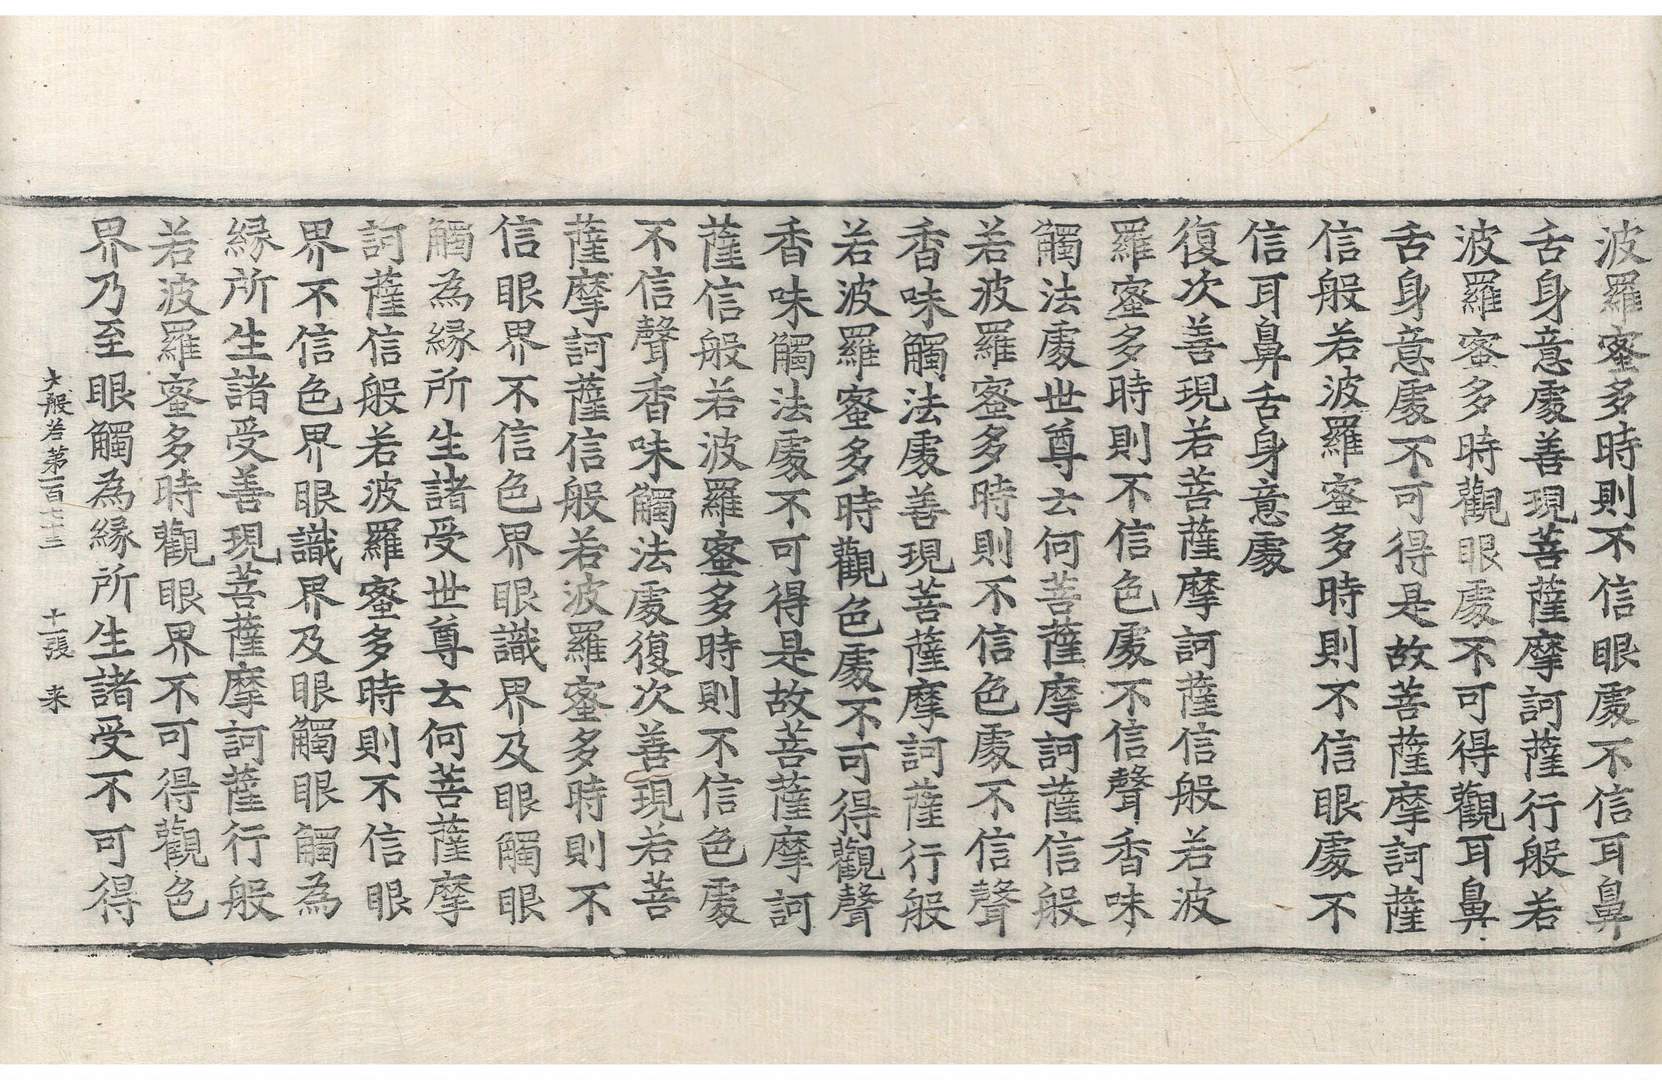 波羅蜜多時則不信眼處不信耳鼻
舌身意處善現菩薩摩訶薩行般若
波羅蜜多時觀眼處不可得觀耳鼻
舌身意處不可得是故菩薩摩訶薩
信般若波羅蜜多時則不信眼處不
信耳鼻舌身意處
復次善現若菩薩摩訶薩信般若波
羅蜜多時則不信色處不信聲香味
觸法處世尊云何菩薩摩訶薩信般
若波羅蜜多時則不信色處不信聲
香味觸法處善現菩薩摩訶薩行般
若波羅蜜多時觀色處不可得觀聲
香味觸法處不可得是故菩薩摩訶
薩信般若波羅蜜多時則不信色處
不信聲香味觸法處復次善現若菩
薩摩訶薩信般若波羅蜜多時則不
信眼界不信色界眼識界及眼觸眼
觸為緣所生諸受世尊云何菩薩摩
訶薩信般若波羅蜜多時則不信眼
界不信色界眼識界及眼觸眼觸為
緣所生諸受善現菩薩摩訶薩行般
若波羅蜜多時觀眼界不可得觀色
界乃至眼觸為緣所生諸受不可得
大般若第一百七十三 十一張 来